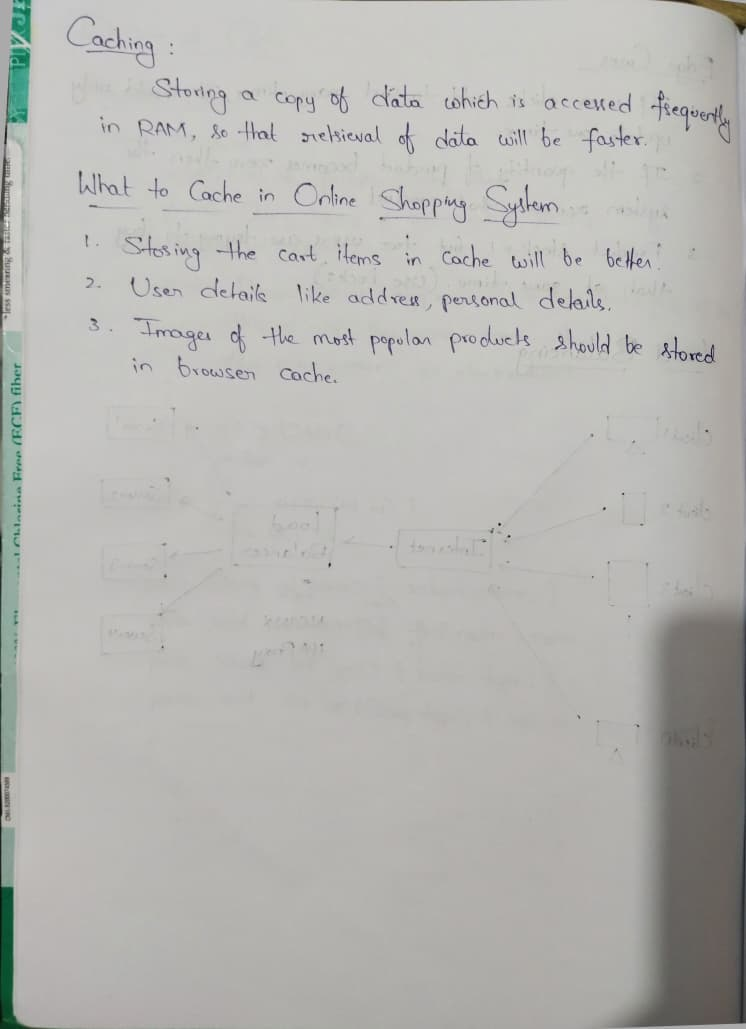 Caching :
Storing a copy of data which is accessed frequently
in RAM, so that retrieval of data will be faster.
What to Cache in Online Shopping System
1. Storing the cart items in Cache will be better.
2. User details like address, personal details.
3. Images of the most popular products should be stored
in browser cache.